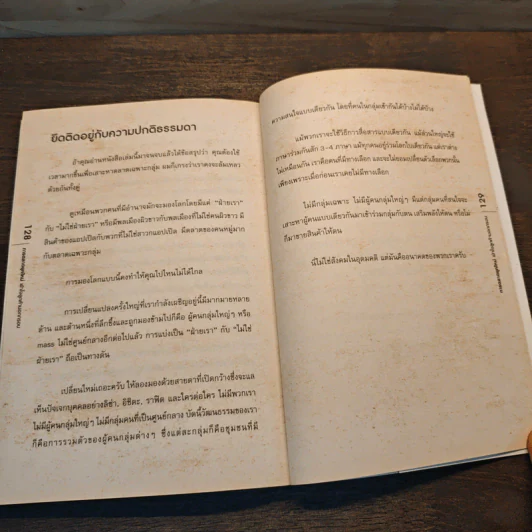 ยึดติดอยู่กับความปกติธรรมดา
ถ้าคุณอ่านหนังสือเล่มนี้มาจนจบแล้วได้ข้อสรุปว่า คุณต้องใช้
เวลามากขึ้นเพื่อเสาะหาตลาดเฉพาะกลุ่ม ผมก็เกรงว่าเราคงจะล้มเหลว
ด้วยกันทั้งคู่
ดูเหมือนพวกคนที่มีอำนาจมักจะมองโลกโดยมีแค่ “ฝ่ายเรา”
กับ “ไม่ใช่ฝ่ายเรา” หรือมีพลเมืองผิวขาวกับพลเมืองที่ไม่ใช่คนผิวขาว มี
สินค้าของแอปเปิลกับพวกที่ไม่ใช่สาวกแอปเปิล มีตลาดของคนหมู่มาก
กับตลาดเฉพาะกลุ่ม
การมองโลกแบบนี้คงทำให้คุณไปไหนไม่ได้ไกล
การเปลี่ยนแปลงครั้งใหญ่ที่เรากำลังเผชิญอยู่นี้มีมากมายหลาย
ด้าน และด้านหนึ่งที่ลึกซึ้งและถูกมองข้ามไปก็คือ ผู้คนกลุ่มใหญ่ๆ หรือ
mass ไม่ใช่ศูนย์กลางอีกต่อไปแล้ว การแบ่งเป็น “ฝ่ายเรา” กับ “ไม่ใช่
ฝ่ายเรา” ถือเป็นทางตัน
เปลี่ยนใหม่เถอะครับ ให้ลองมองด้วยสายตาที่เปิดกว้างซึ่งจะแล
เห็นปัจเจกบุคคลอย่างลิซ่า, อิชิตะ, ราฟิต และใครต่อใคร ไม่มีพวกเรา
ไม่มีผู้คนกลุ่มใหญ่ๆ ไม่มีกลุ่มคนที่เป็นศูนย์กลาง บัดนี้วัฒนธรรมของเรา
ก็คือการรวมตัวของผู้คนกลุ่มต่างๆ ซึ่งแต่ละกลุ่มก็คือชุมชนที่มี
128
ความสนใจแบบเดียวกัน โดยที่คนในกลุ่มเข้ากันได้บ้างไม่ได้บ้าง
แม้พวกเราจะใช้วิธีการสื่อสารแบบเดียวกัน แม้ส่วนใหญ่จะใช้
ภาษาร่วมกันสัก 3-4 ภาษา แม้ทุกคนอยู่ร่วมโลกใบเดียวกัน แต่เราต่าง
ไม่เหมือนกัน เราคือคนที่มีทางเลือก และจะไม่ยอมเปลี่ยนตัวเลือกพวกนั้น
เพียงเพราะเมื่อก่อนเราเคยไม่มีทางเลือก
ไม่มีกลุ่มเฉพาะ ไม่มีผู้คนกลุ่มใหญ่ๆ มีแต่กลุ่มคนที่สนใจจะ
เสาะหาผู้คนแบบเดียวกันมาเข้าร่วมกลุ่มกับตน เสริมพลังให้ตน หรือไม่
ก็มาขายสินค้าให้ตน
นี่ไม่ใช่สังคมในอุดมคติ แต่มันคืออนาคตของพวกเราครับ
129